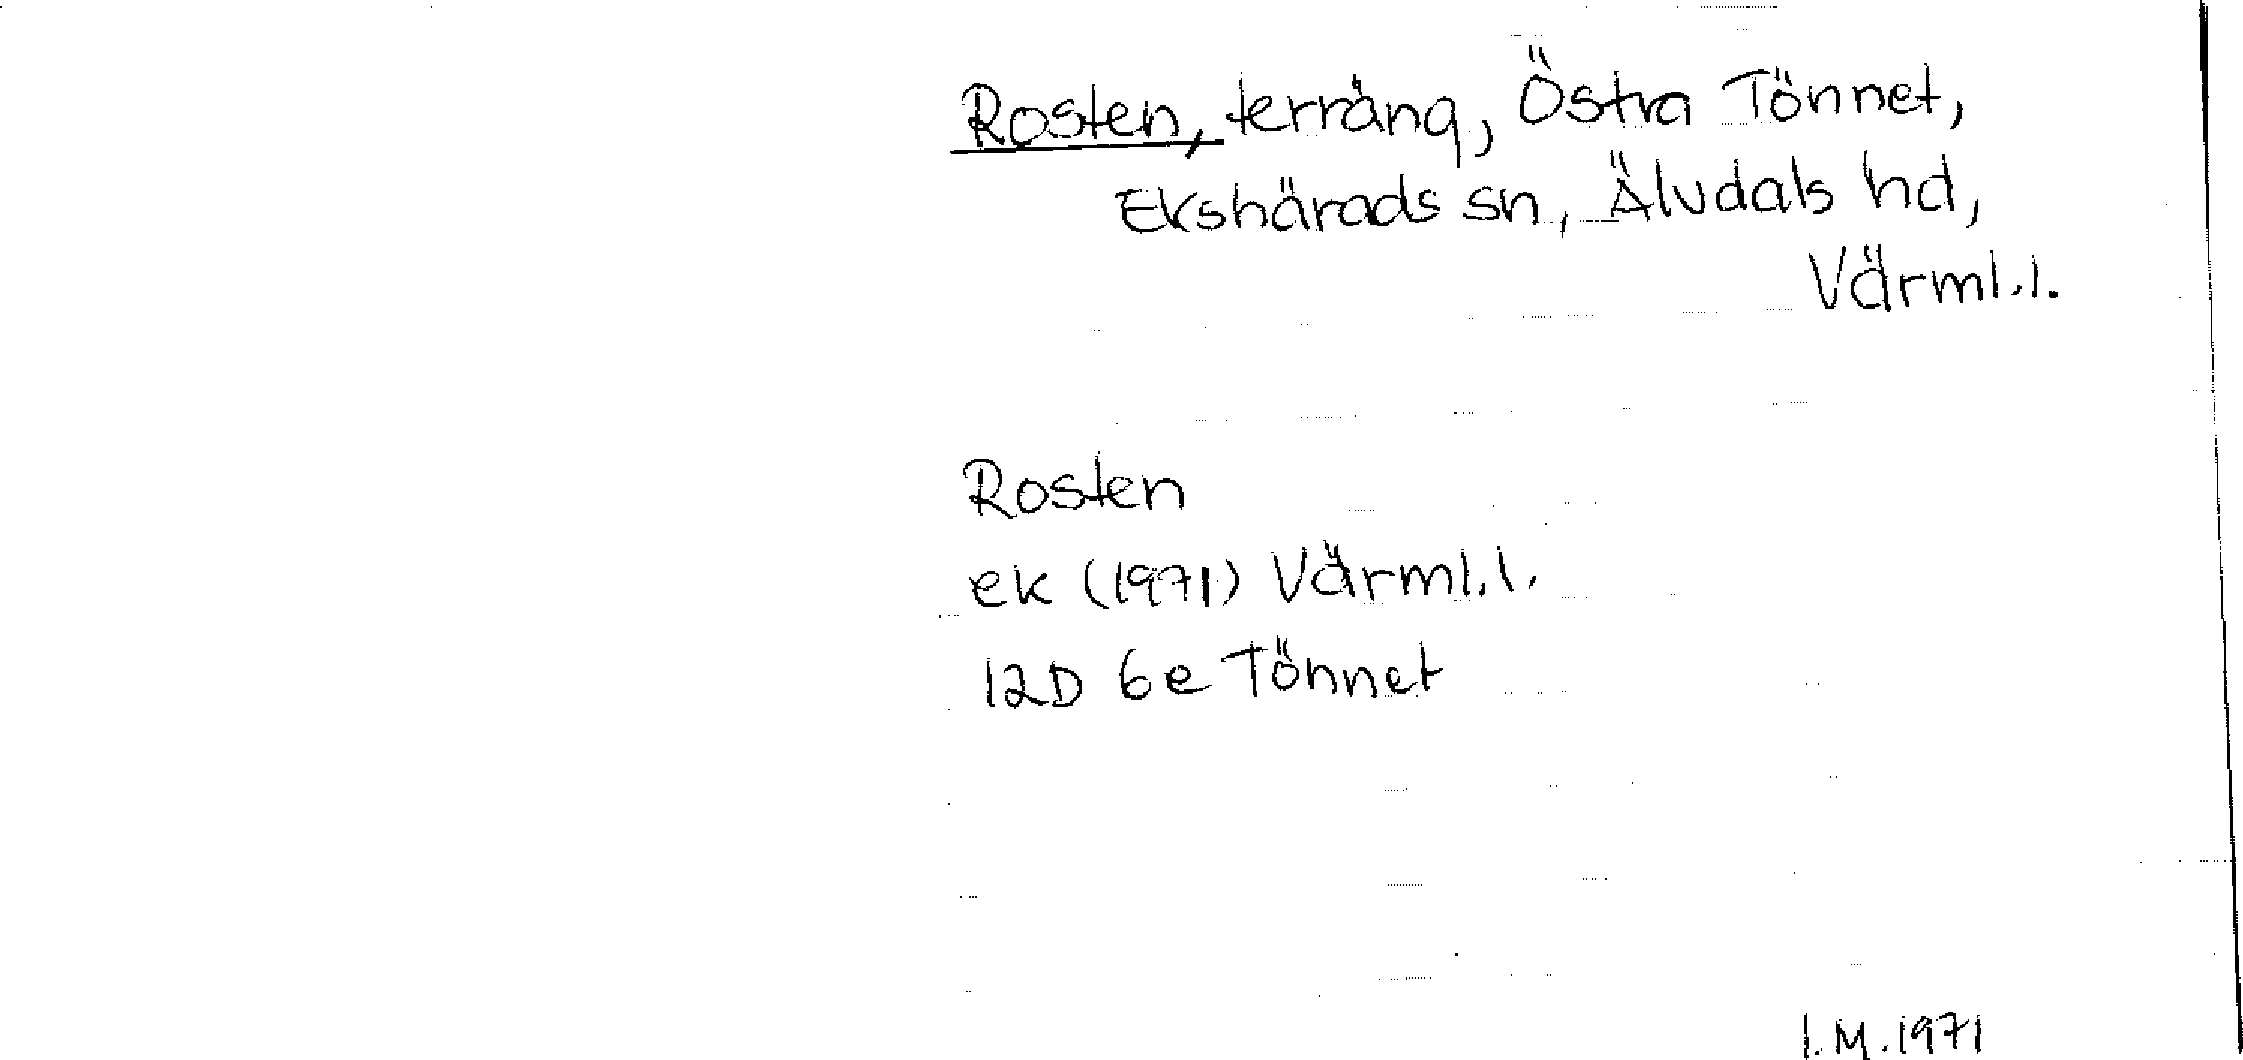 Rosten, terräng, Östra Tönnet,
Ekshärads sn, Älvdals hd,
Värml.l.
Rosten
ek (1971) Värml.l.
12D 6e Tönnet
I.M.1971